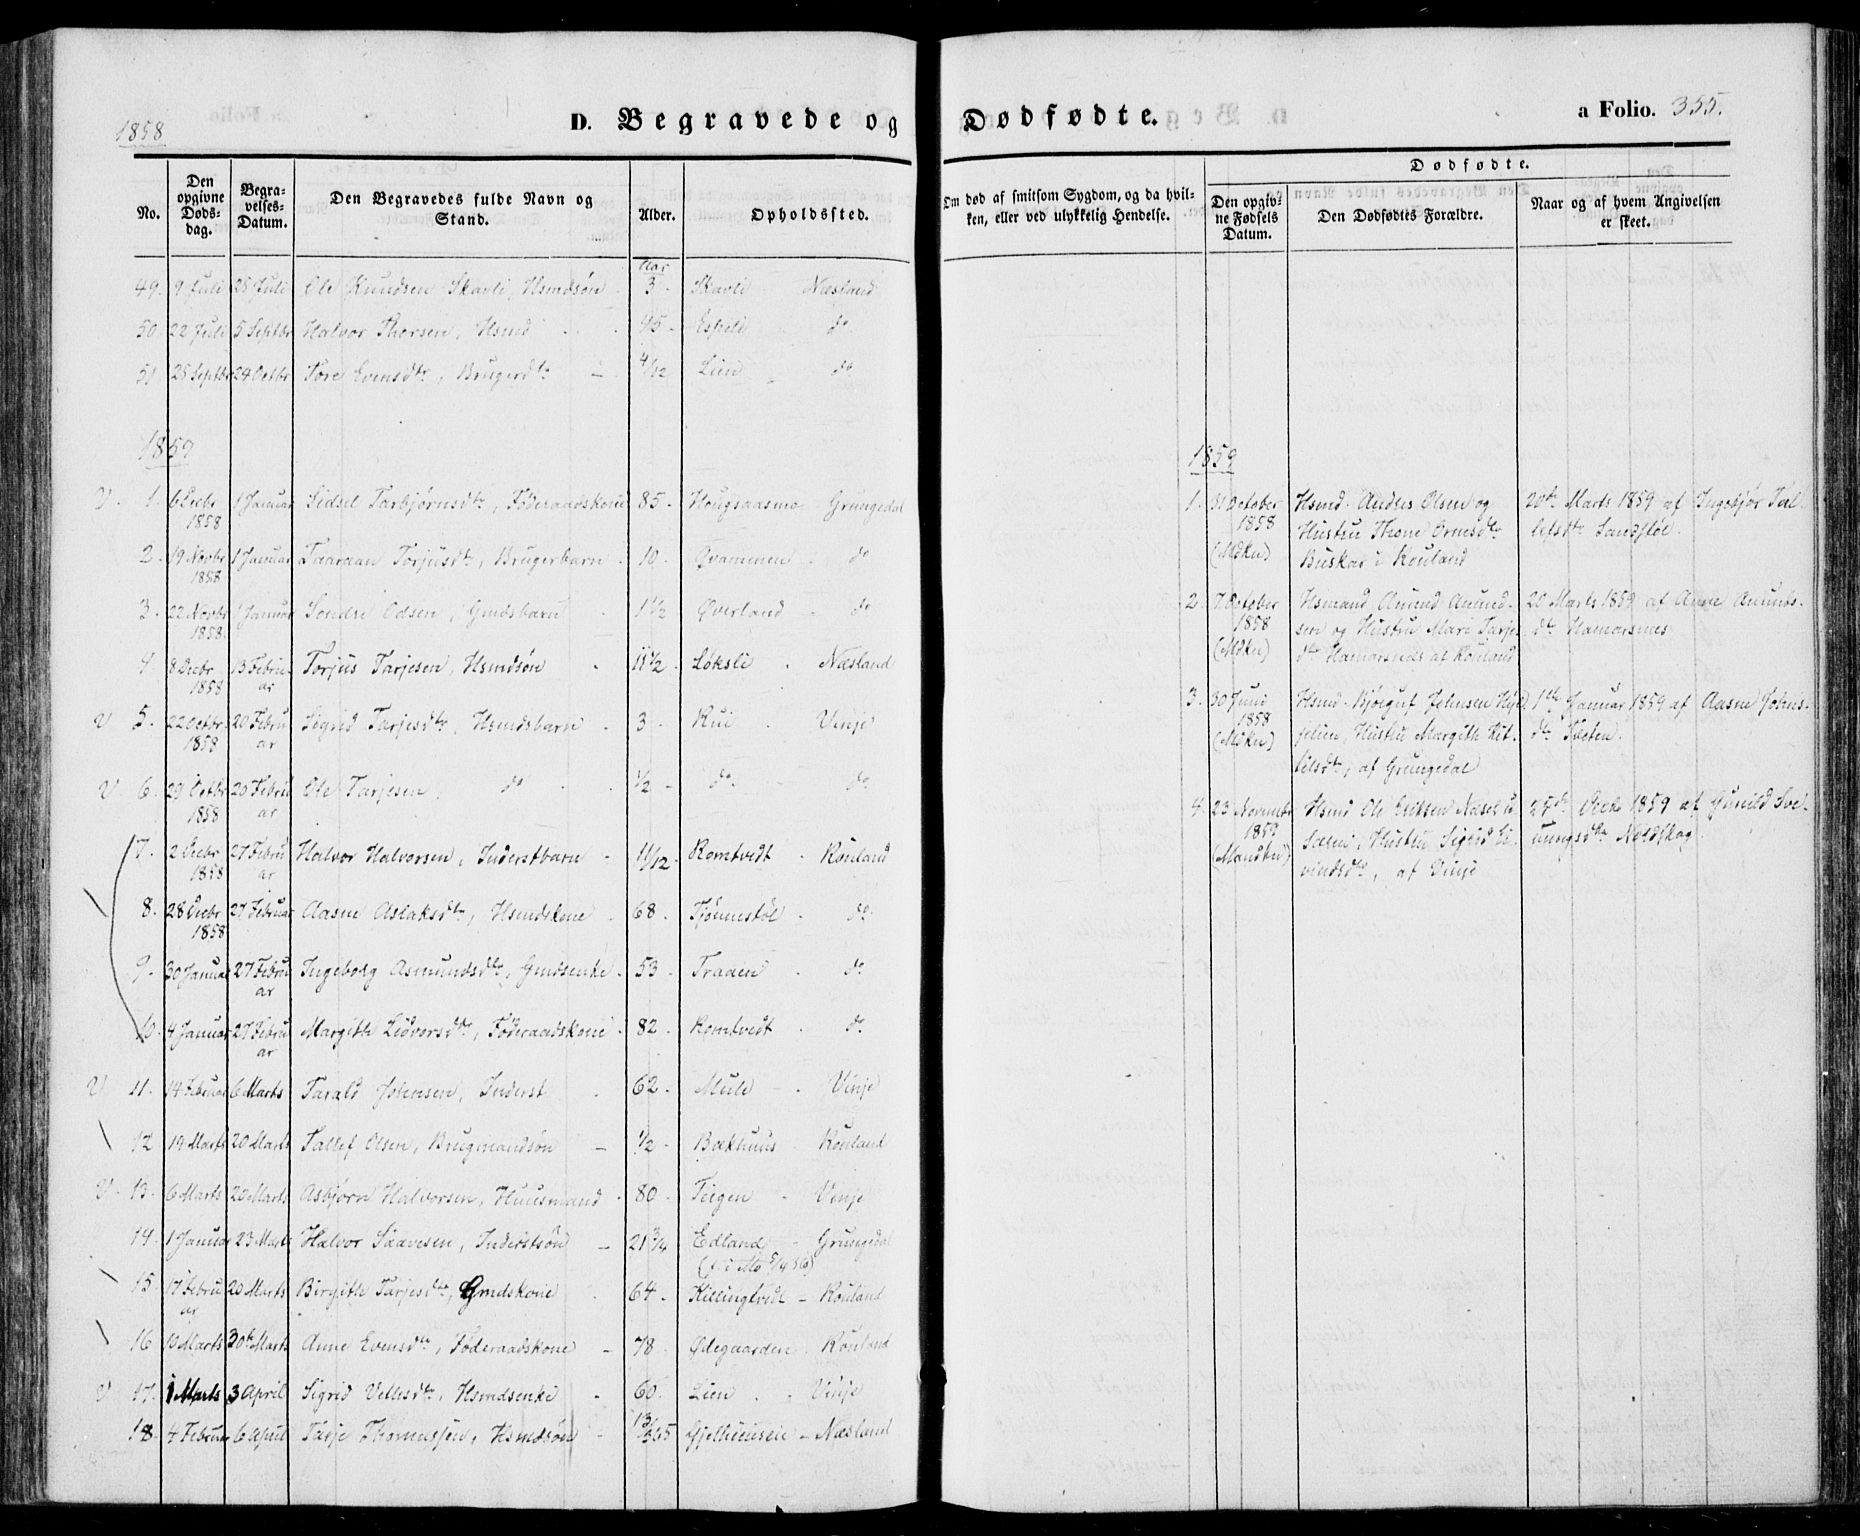 1858
D. Begravede og
No.
Den opgivne Dødsdag.
Begravelses-Datum.
Den Begravedes fulde Navn og Stand.
Alder.
Opholdssted.
Aar
49. 9 Juli 28 Juli Ole Knudsen Skavli, Hsmdsøn 3 - Skavli Næsland
50. 22 Juli 5 Septbr Halvor Thorsen, Hsmd 45 - do
51 25 Septbr 24 Octbr Tore Evensdtr, Brugerdtr - 4/12 Lien do
1859
V. 1. 6 Decbr 1858 1 Januar Sidsel Torbjørnsdtr, Føderaadskone 85 - Hougsaasmo Grungedal
2. 19 Novbr 1858 1 Januar Taaraan Torjusdtr, Brugerbarn 10. Qvammen - do
3. 22 Novbr 1858. 1 Januar Sondre Odsen, Gmdsbarn 1 1/2 Øverland - do
4 8 Decbr 1858 13 Februar Torjus Tarjesen, Hsmdsøn 11 1/2 - Løksli . Næsland
V 5. 22 Octbr 1858 20 Februar Sigrid Tarjesdtr, Hsmdsbarn 3 - Rui . Vinje
V 6. 29 Octbr 1858 20 Februar Ole Tarjesen, do 1/2 - do - do
7. 2 Decbr 1858 27 Februar Halvor Halvorsen, Inderstbarn - 11/12 - Romtvedt . Rouland
8. 28 Decbr 1858 27 Februar Aasne Aslaksdtr, Hsmdskone - 68 - Tjønnestøl - do
9. 30 Januar 27 Februar Ingeborg Asmundsdtr, Gmdsenke - 53 - Traaen . do
10. 4 Januar 27 Februar Margith Lidvorsdtr, Føderaadskone - 82 - Romtvedt . do
V 11. 14 Februar 6 Marts Tarald Johnsen, Inderst 62 - Mule - Vinje
12 19 Marts 20 Marts Tallef Olsen, Brugmandsøn - 1/2 - Bækhuus - Rouland
V. 13. 6 Marts 20 Marts Asbjørn Halvorsen, Huusmand - 80 - Teigen - Vinje
14. 1 Januar 23 Marts Halvor Saavesen, Inderstsøn - 21 3/4 Edland - Grungedal
15. 17 Februar 20 Marts Birgith Tarjesdtr, Gmdskone 64 - Killingtvedt - Rouland
16 10 Marts 20te Marts Anne Evensdtr, Føderaadskone - 78. Ødegaarden. Rouland
V 17. 1 Marts 3 April Sigrid Vetlesdtr, Hsmdsenke - 60. Lien . Vinje
18. 4 Februar 6 April Tarje Thomassen, Hsmdsøn - 13/365 - Næsland
Dødfødte.
a Folio. 355.
Om død af smitsom Sygdom, og da hvilken, eller ved ulykkelig Hendelse.
Dødfødte.
Den opgivne Fødsels Datum.
Den Dødfødtes Forældre.
Naar og af hvem Angivelsen er skeet.
1859
1. 31 October 1858 (Mdkn) Hsmd. Anders Olsen og Hustru Thone Ormsdtr Buskar i Rouland 20de Marts 1859 af Ingebjør Tallefsdtr Sandstøl.
2. 7 October 1858 (Mdkn) Hsmand Anund Anundsen og Hustru Mari Tarjesdtr Hamarsnes af Rouland 20 Marts 1859 af Anne Anundsdtr Hamarsnes
3. 30 Juni 1858 (Mdkn) Hsmd. Bjørguf Johnsen Hyljelien, Hustru Margith Kittilsdtr, af Grungedal 1ste Januar 1859 af Aasne Johnsdtr Tveten.
4. 23 Novembr 1859 (Mandkn) Hsmd Ole Eriksen Næstu Hustru Sigrid Eivindsdtr, af Vinje Decbr 1859 af Gunild Sveinungsdtr Nordskog